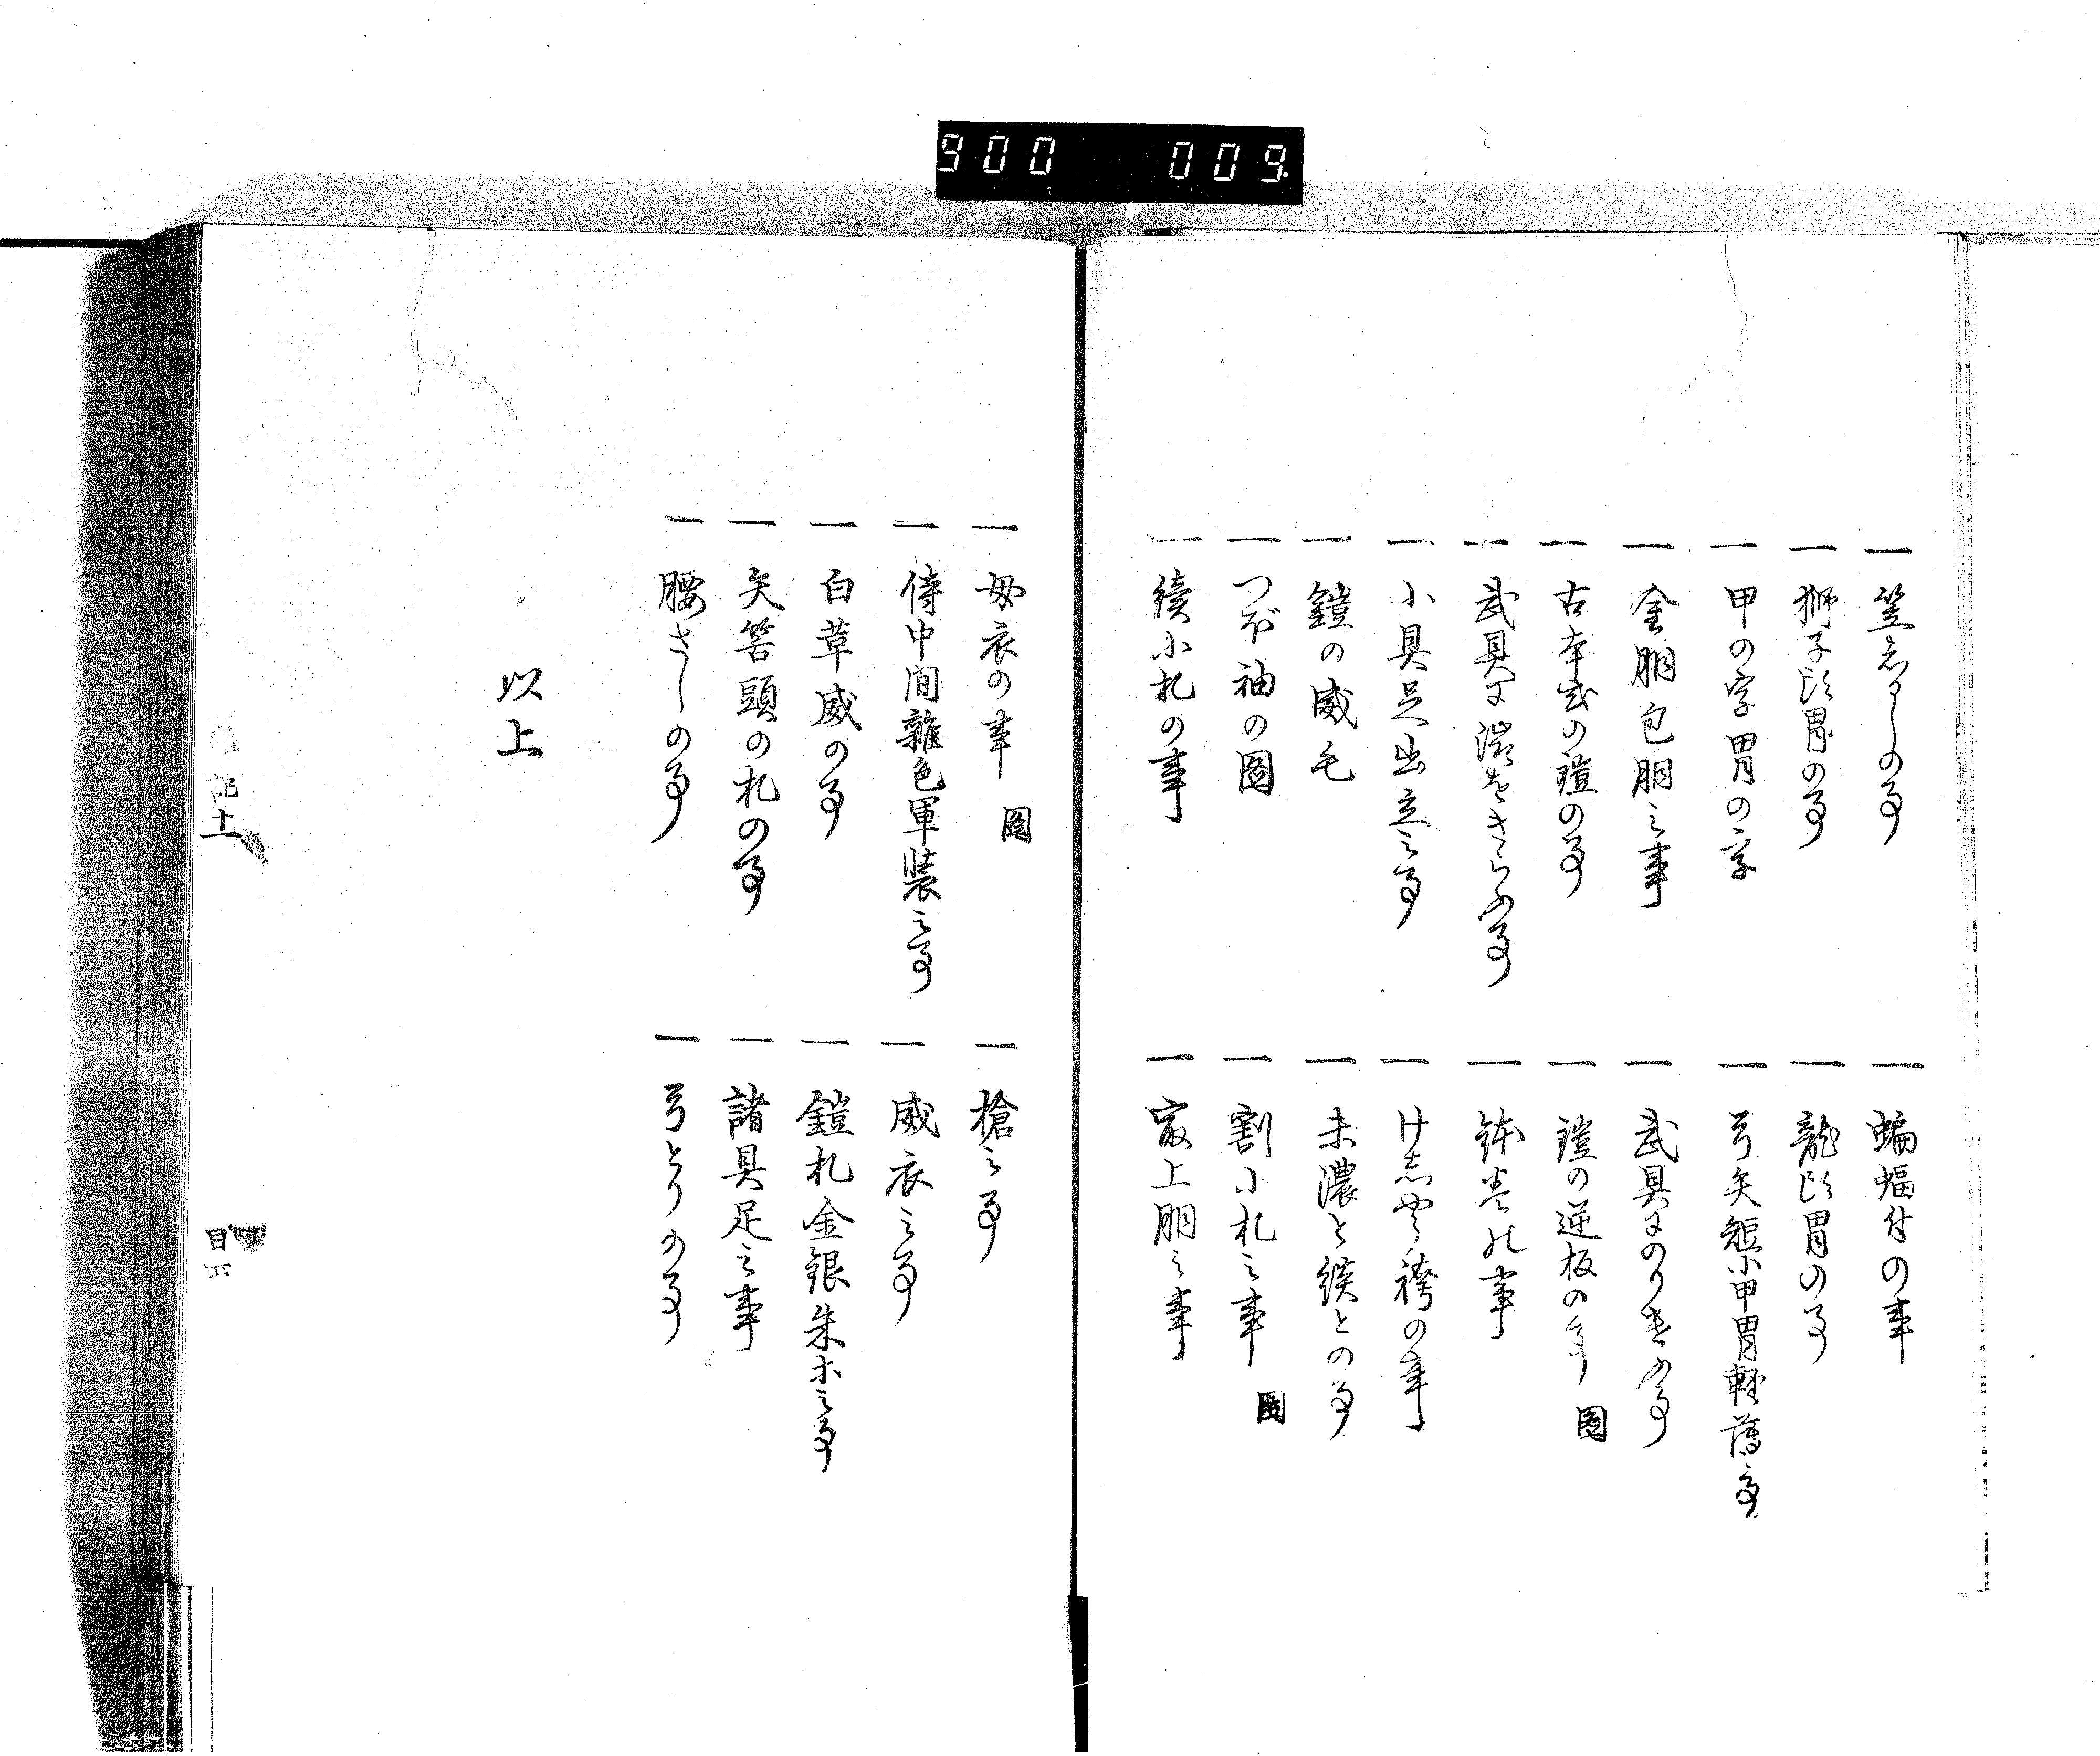 900 009
一 笠志るしの事
一 蝙蝠付の事
一 獅子頭冑の事
一 龍頭冑の事
一 甲の字冑の字
一 弓矢短小甲冑軽薄事
一 金胴包胴之事
一 武具にのりきふ事
一 古本式の鎧の事
一 鎧の逆板の事 圖
一 武具に澁をきらふ事
一 鉢巻の事
一 小具足出立之事
一 けしやう袴の事
一 鎧の威毛
一 末濃と緂との事
一 つぼ袖の圖
一 割小札之事 圖
一 續小札の事
一 最上胴之事
一 母衣の事 圖
一 槍之事
一 侍中間雑色軍装之事
一 威衣之事
一 白草威の事
一 鎧札金銀朱木之事
一 矢筈頭の札の事
一 諸具足之事
一 腰さしの事
一 弓とりの事
以上
記十
目